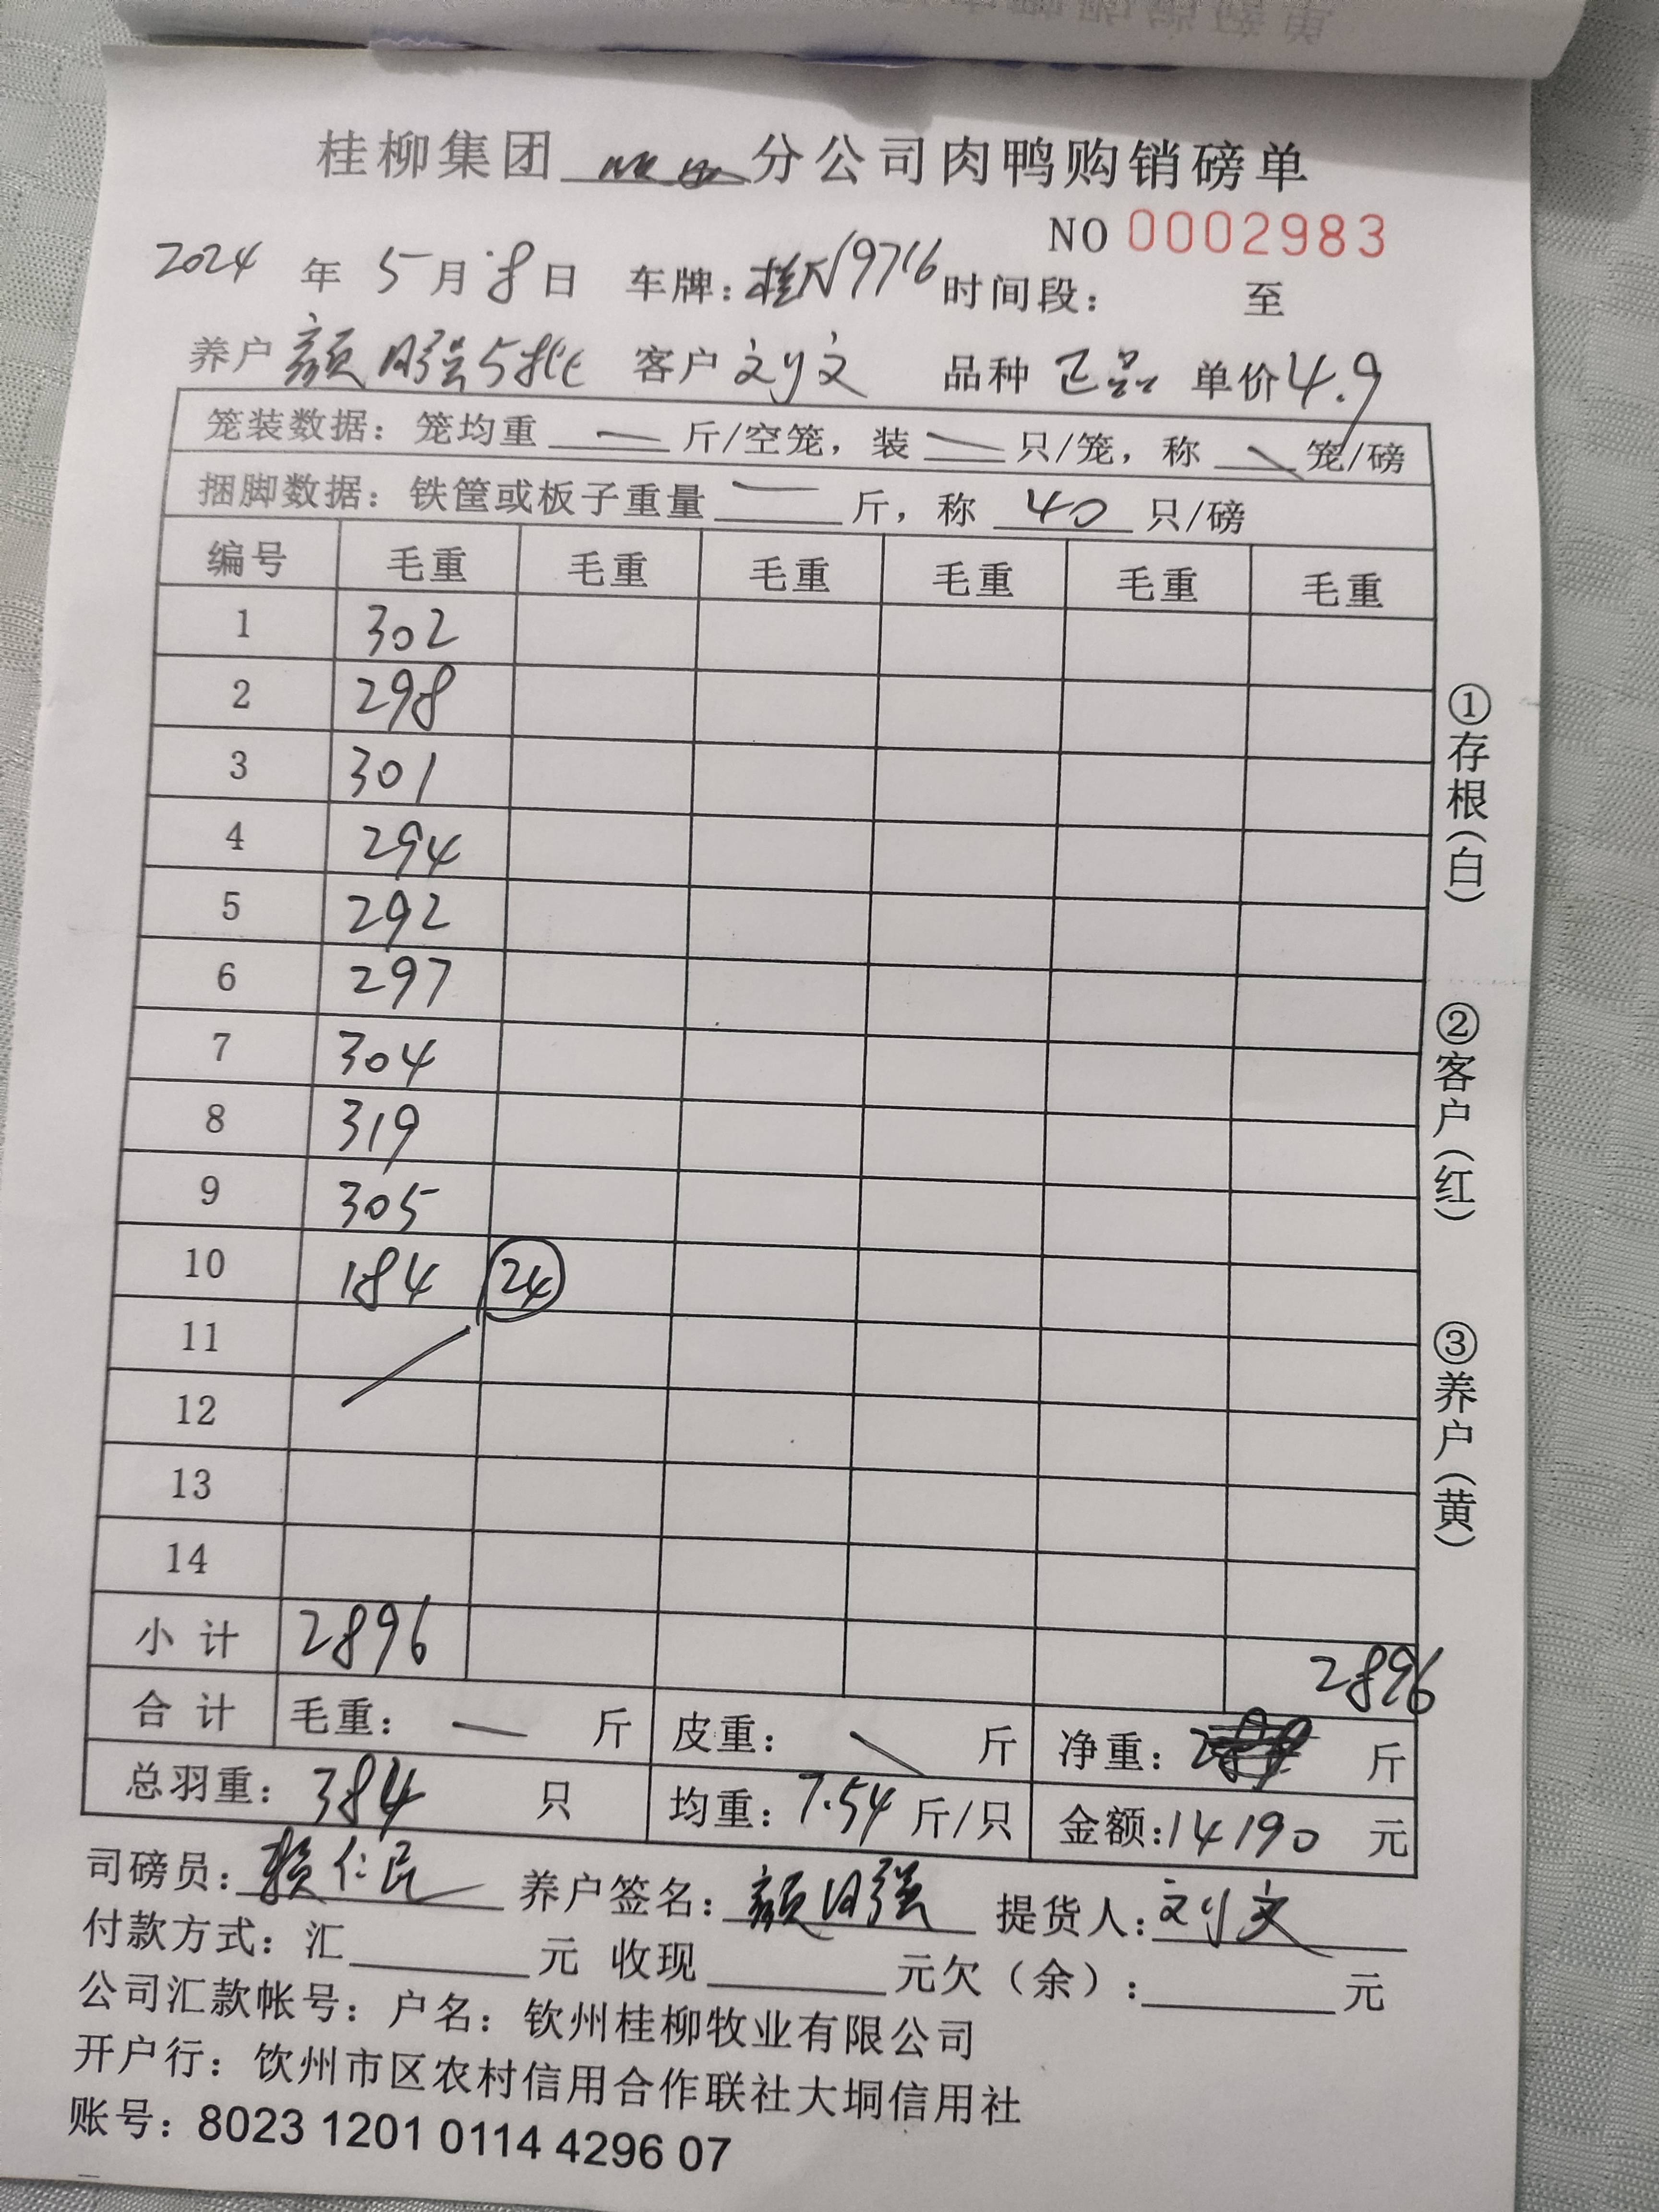 桂柳集团 分公司肉鸭购销磅单
NO 0002983
2024 年 5 月 8 日 车牌：桂N19716 时间段： 至
养户 颜日强5批 客户 刘文 品种 正品 单价 4.9
笼装数据：笼均重 — 斤/空笼，装 — 只/笼，称 — 笼/磅
捆脚数据：铁筐或板子重量 — 斤，称 40 只/磅
编号 毛重 毛重 毛重 毛重 毛重 毛重
1 302
2 298
3 301
4 294
5 292
6 297
7 304
8 319
9 305
10 184 24
11
12
13
14
小计 2896 2896
合计 毛重： — 斤 皮重： — 斤 净重： 斤
总羽重： 384 只 均重：7.54 斤/只 金额：14190 元
司磅员：赖仁民 养户签名：颜日强 提货人：刘文
付款方式：汇 元 收现 元欠（余）： 元
公司汇款帐号：户名：钦州桂柳牧业有限公司
开户行：饮州市区农村信用合作联社大垌信用社
账号：8023 1201 0114 4296 07
①存根（白）
②客户（红）
③养户（黄）